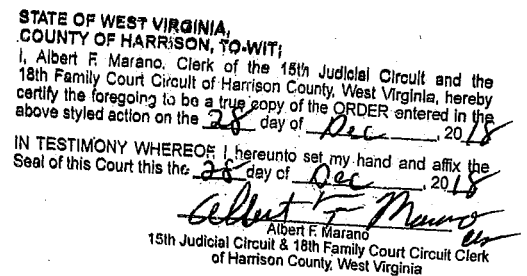 STATE OF WEST VIRGINIA,
COUNTY OF HARRISON, TO-WIT;
I, Albert F. Marano. Clerk of the 15th Judicial Circuit and the
18th Family Court Circuit of Harrison County, West Virginia, hereby
certify the foregoing to be a true copy of the ORDER entered in the
above styled action on the 28 day of Dec, 2018
IN TESTIMONY WHEREOF I hereunto set my hand and affix the
Seal of this Court this the 28 day of Dec, 2018
Albert F Marano
Albert F. Marano
15th Judicial Circuit & 18th Family Court Circuit Clerk
of Harrison County, West Virginia